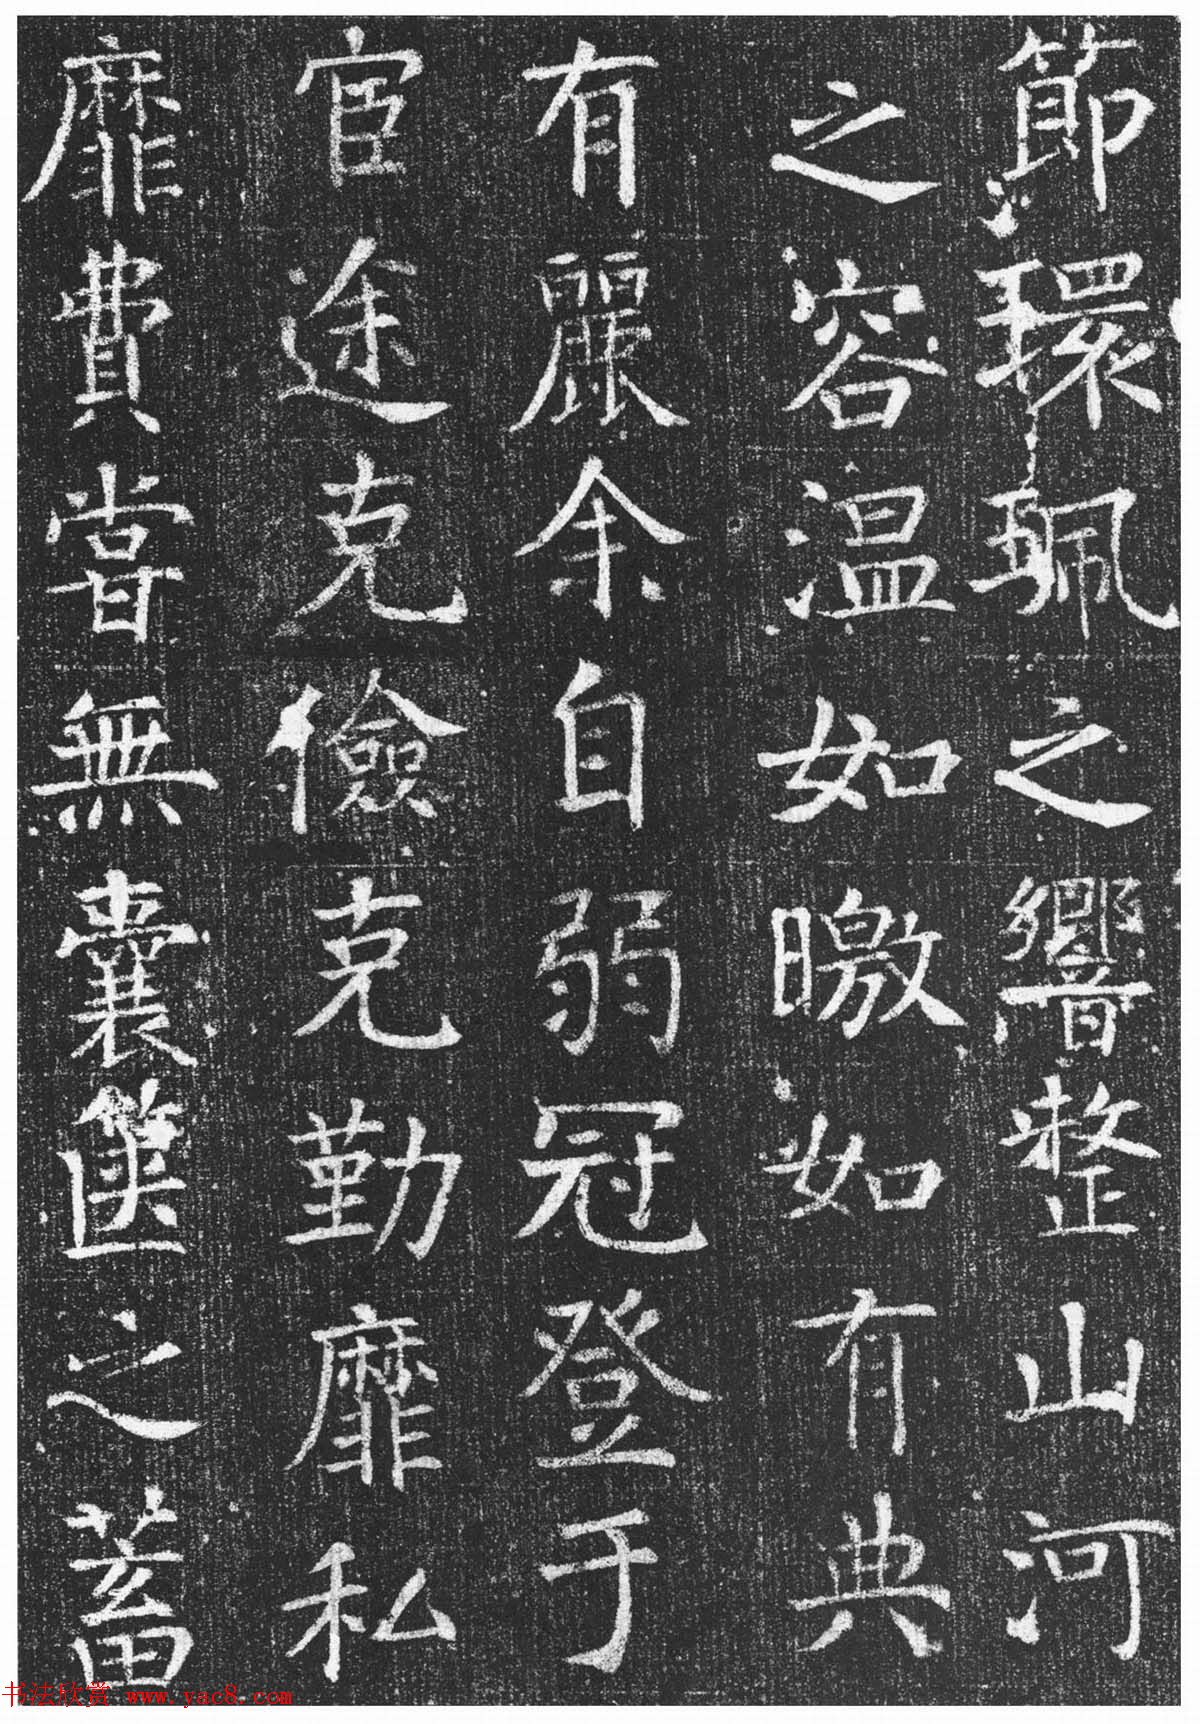 節環珮之響整山河
之容温如曒如有典
有麗余自弱冠登于
宦途克儉克勤靡私
靡費嘗無囊篋之蓄
书法欣赏 www.yac8.com